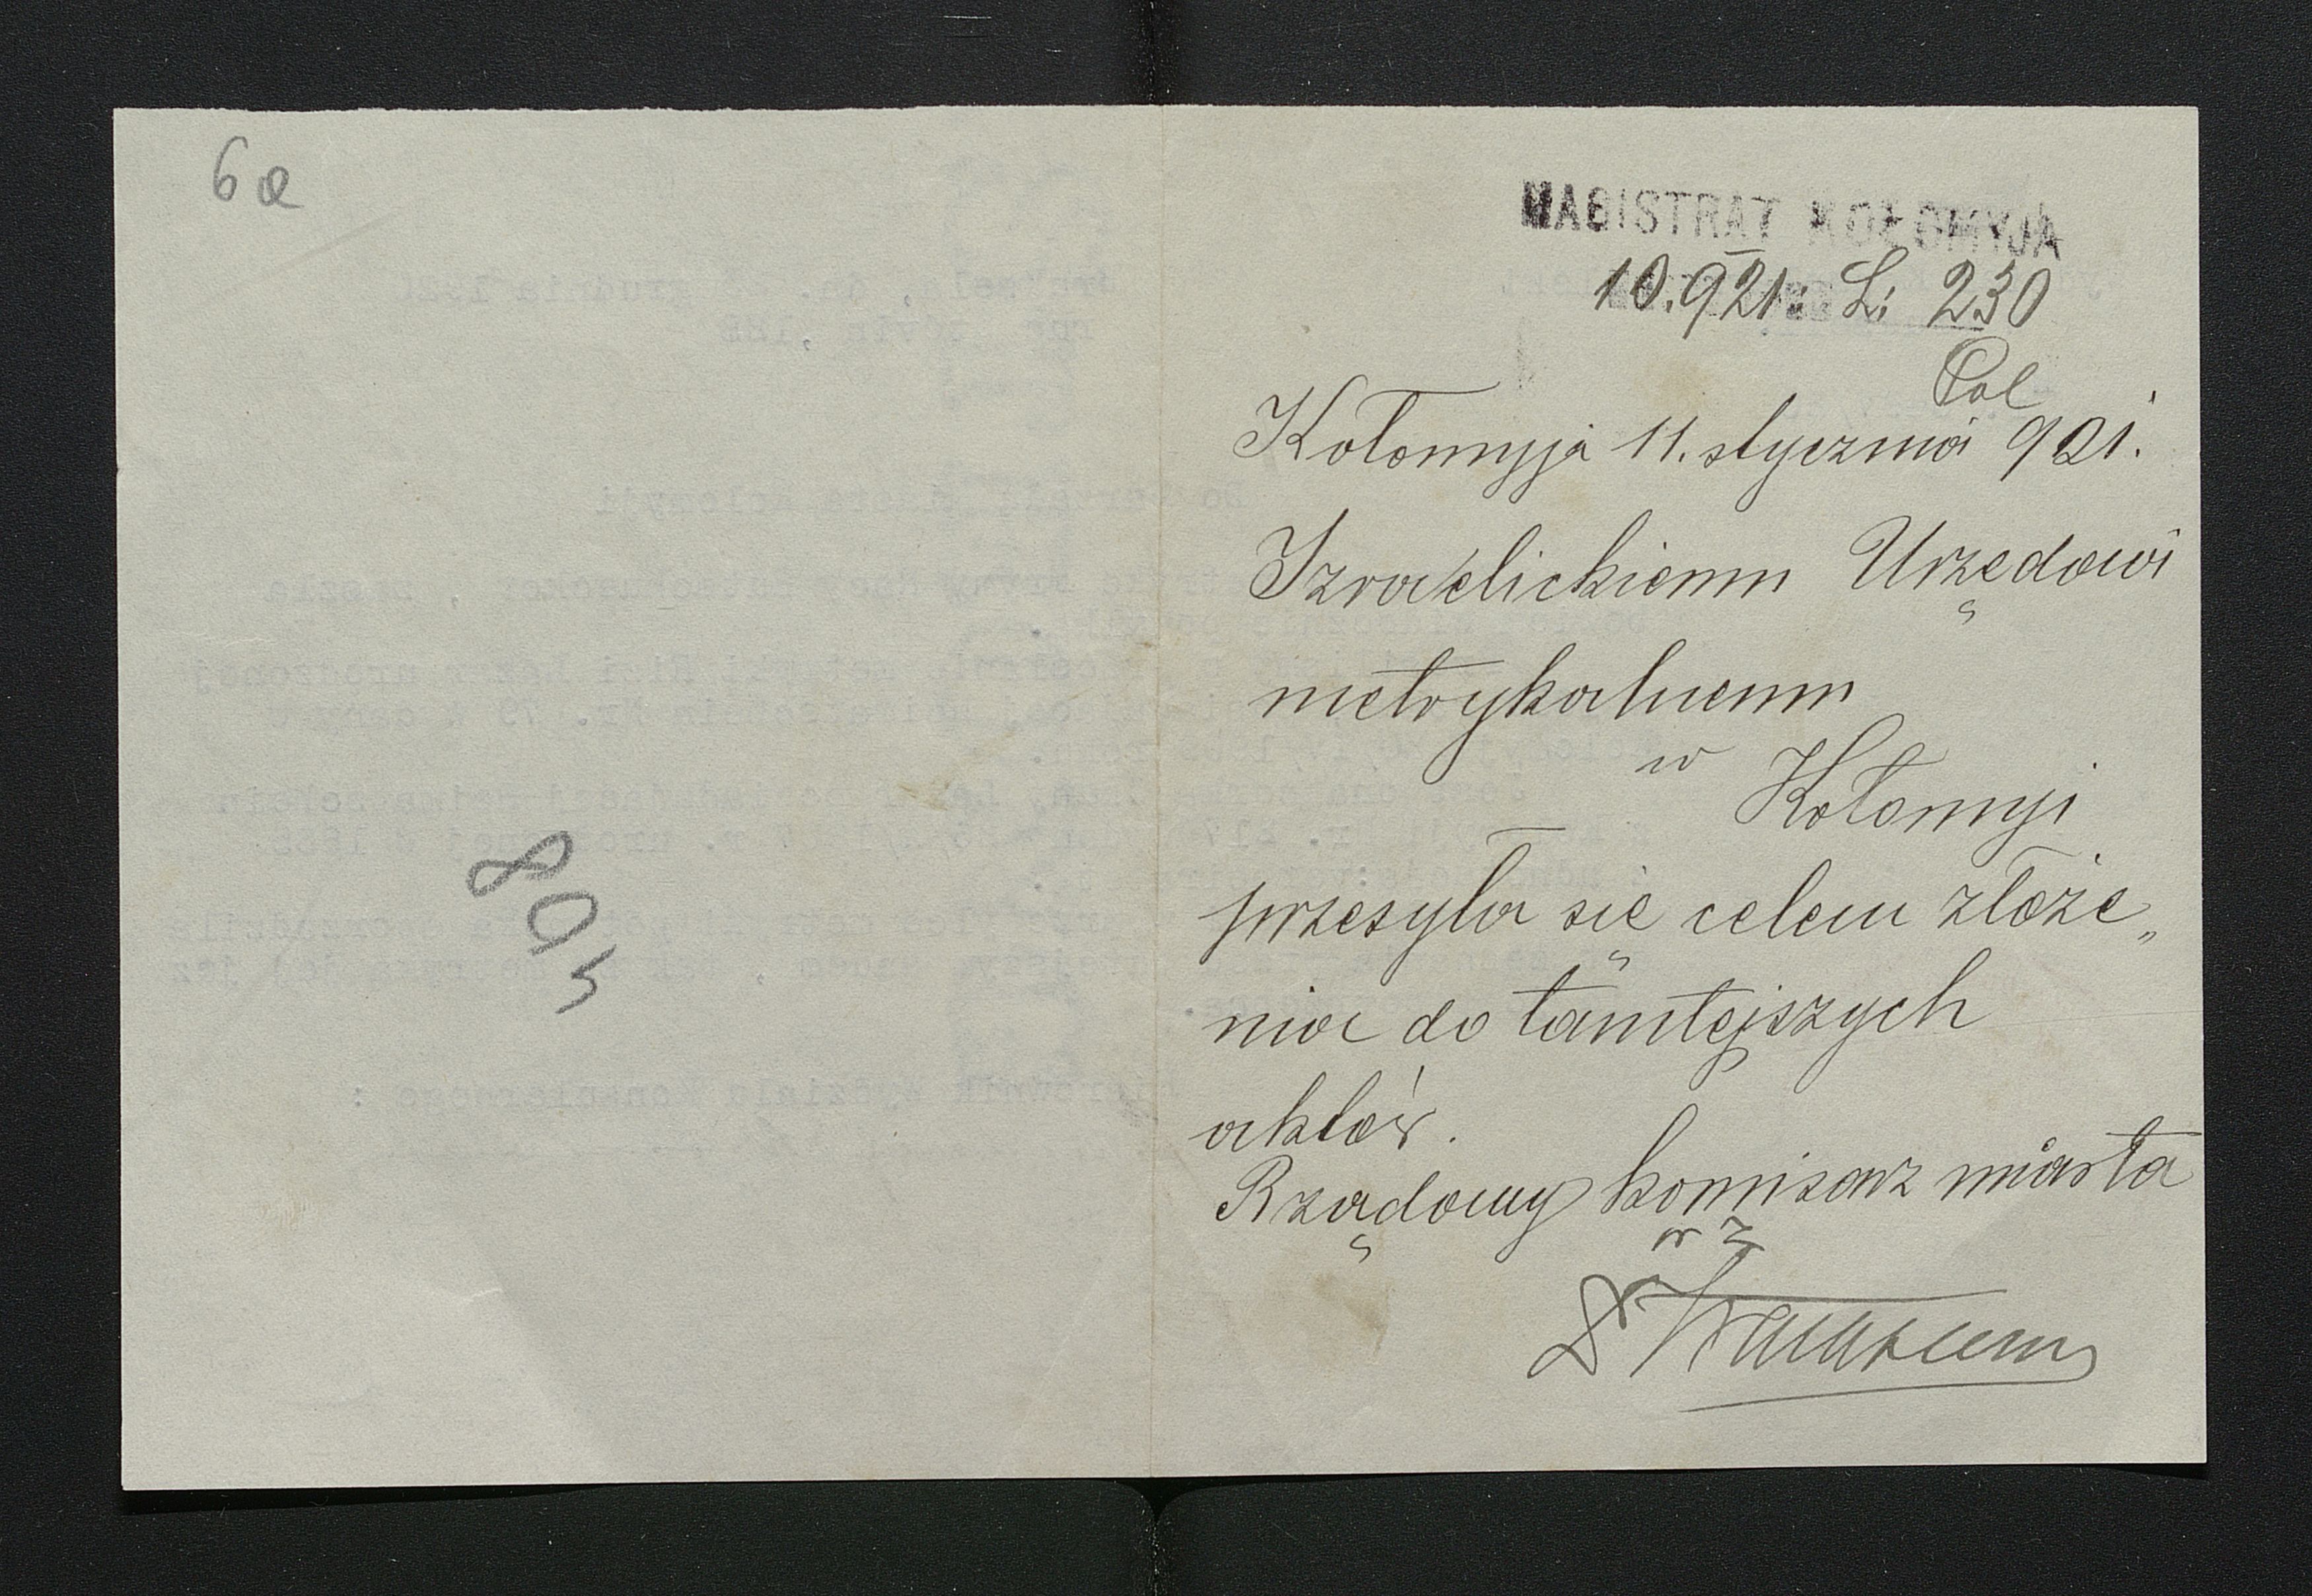 6a
MAGISTRAT KOŁOMYJA
10.921. L: 230
Pol
Kołomyja 11. stycznia 921.
Izraelickiemu Urzędowi
metrykalnemu
w Kołomyi
przesyła się celem złoże„
nia do tamtejszych
aktów.
Rządowy komisarz miasta
w z
Dr